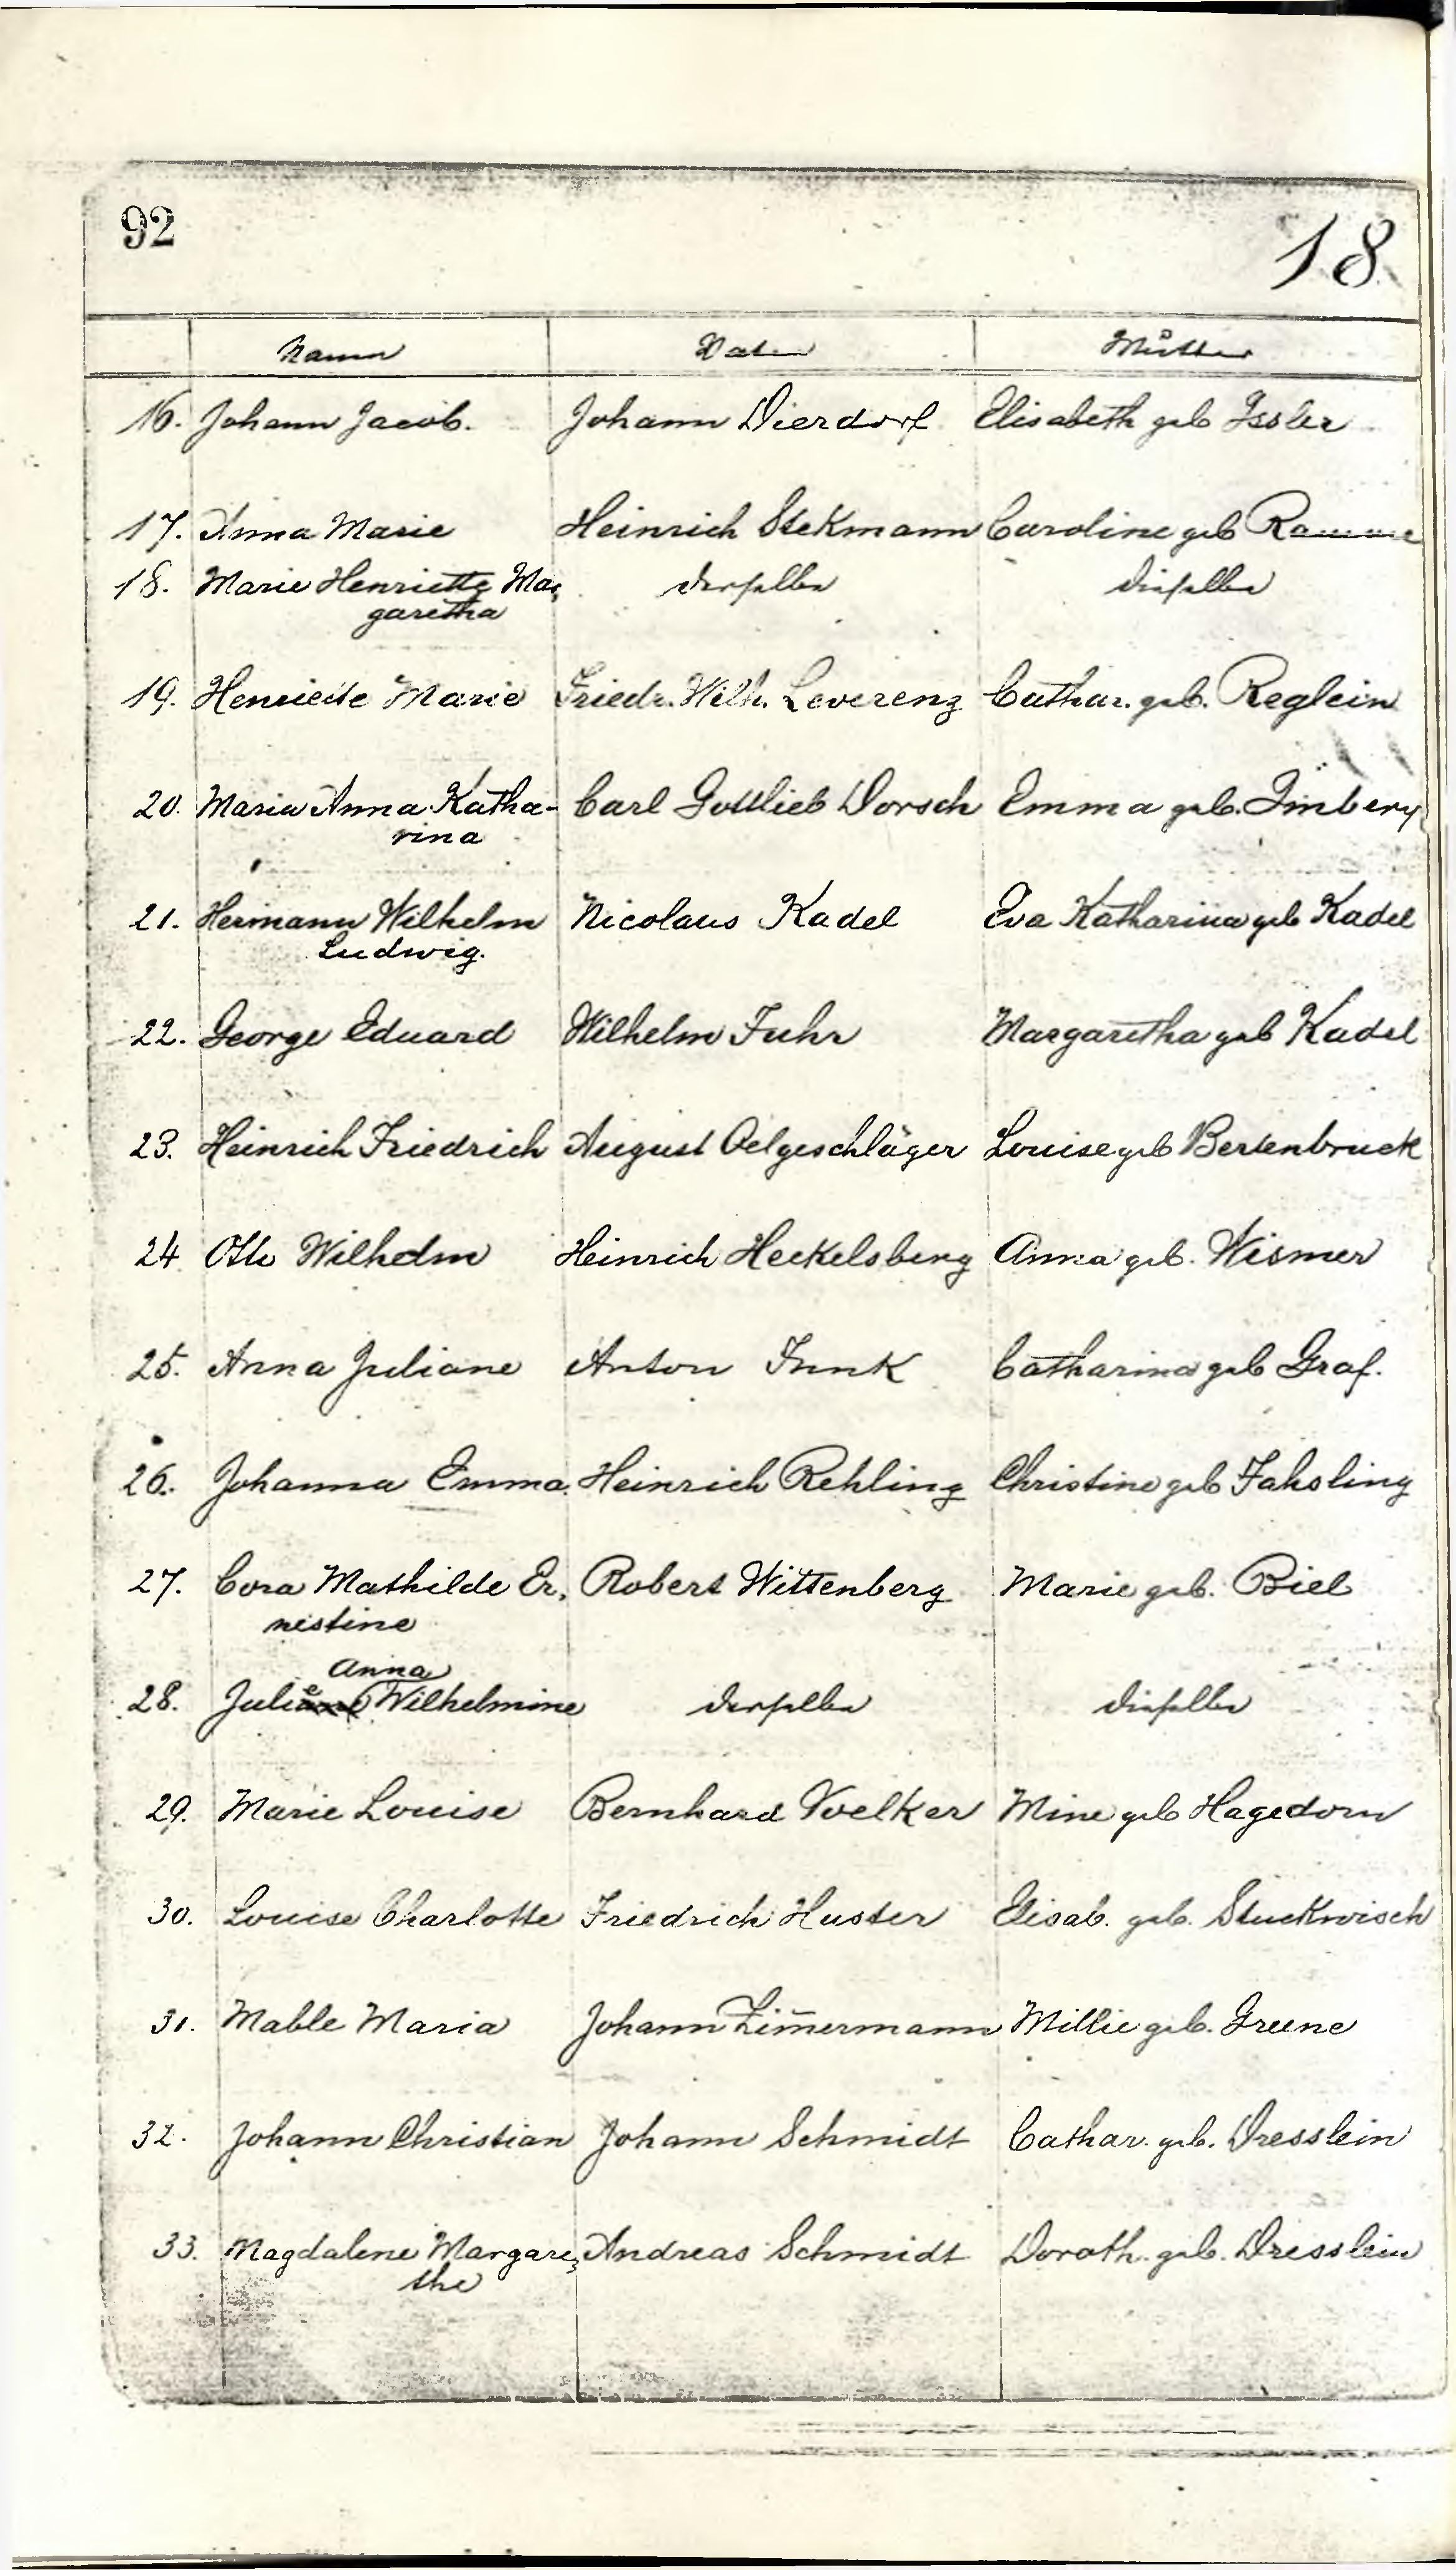 92
18
Namen Vater Mutter
16. Johann Jacob. Johann Dierdorf Elisabeth geb Issler
17. Anna Marie Heinrich Stekmann Caroline geb Ramme
18. Marie Henriette Mar, derselbe dieselbe
garetha
19. Henriette Marie Friedr. Wilh. Leverenz Cathar. geb. Reglein
20. Maria Anna Katha- Carl Gottlieb Dorsch Emma geb. Imbery
rina
21. Hermann Wilhelm Nicolaus Kadel Eva Katharina geb Kadel
Ludwig.
22. George Eduard Wilhelm Fuhr Margaretha geb Kadel
23. Heinrich Friedrich August Oelgeschläger Louise geb Bertenbruck
24 Otto Wilhelm Heinrich Heckelsberg Anna geb. Wismer
25. Anna Juliane Anton Funk Catharina geb Graf.
26. Johanna Emma. Heinrich Rehling Christine geb Fahsling
27. Cora Mathilde Er, Robert Wittenberg Marie geb. Biel
nestine
Anna
28. Julie Wilhelmine derselbe dieselbe
29. Marie Louise Bernhard Voelker Mine geb Hagedorn
30. Louise Charlotte Friedrich Huster Elisab. geb. Stuckwisch
31. Mable Maria Johann Zim̅ermann Millie geb. Greene
32. Johann Christian Johann Schmidt Cathar. geb. Dresslein
33. Magdalene Margare, Andreas Schmidt Doroth. geb. Dresslein
the